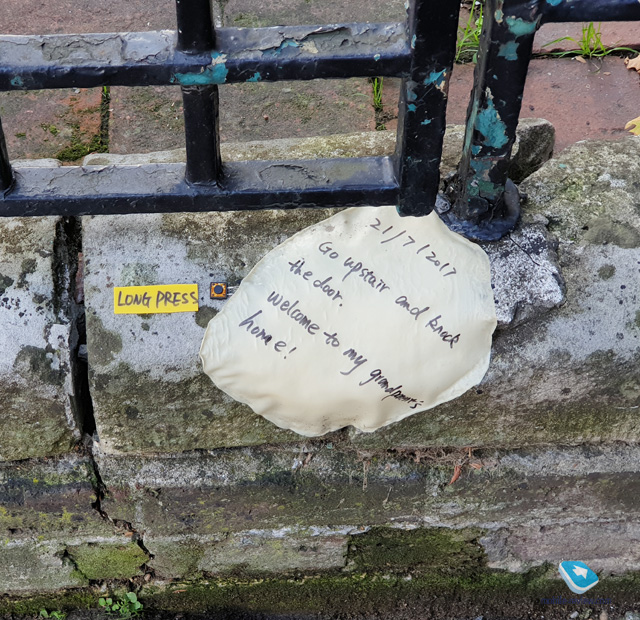 21/7/2017
Go upstair and knock
the door.
Welcome to my grandparent's
home!
LONG PRESS